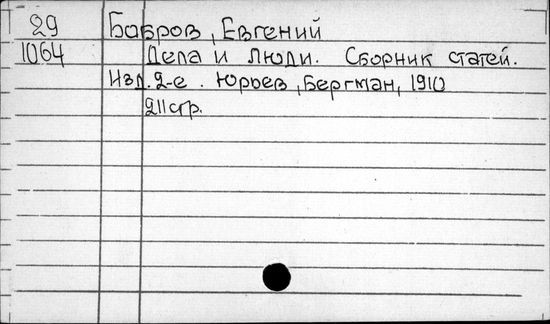 29 Бобров, Евгений
1064 Дела и люди. Сборник статей.
Изд. 2-е. Юрьев, Бергман, 1910
211 стр.